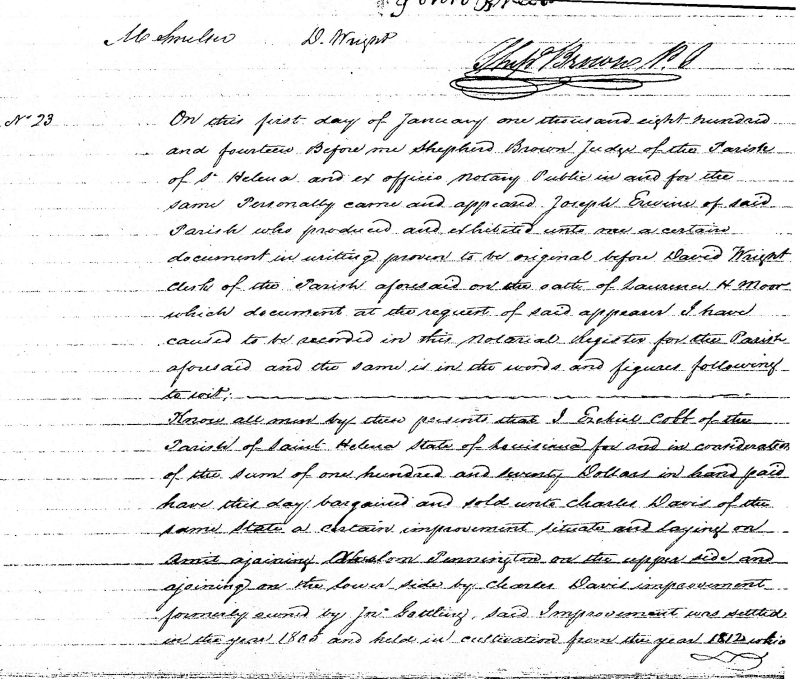 D. Wright
Shepd Brown, P. J
No 23
On this first day of January one thousand eight hundred
and fourteen Before me Shepherd Brown Judge of the Parish
of St Helena and ex officio Notary Public in and for the
same Personally came and appeared Joseph Erwine of said
Parish who produced and exhibited unto me a certain
document in writing proven to be original before David Wright
clerk of the Parish aforesaid on the oath of Laurence H Moor
which document at the request of said appearer I have
caused to be recorded in this Notarial Register for the Parish
aforesaid and the same is in the words and figures following
to wit;
Know all men by these presents that I Ezekiel Cobb of the
Parish of Saint Helena State of Louisiana for and in consideration
of the sum of one hundred and twenty Dollars in hand paid
have this day bargained and sold unto Charles Davis of the
same State a certain improvement situate and laying on
ajoining Absalom Pennington on the upper side and
ajoining on the lower side by Charles Davis improvement
formerly owned by Jno. said Improvement was settled
in the year and held in cultivation from the year 1812